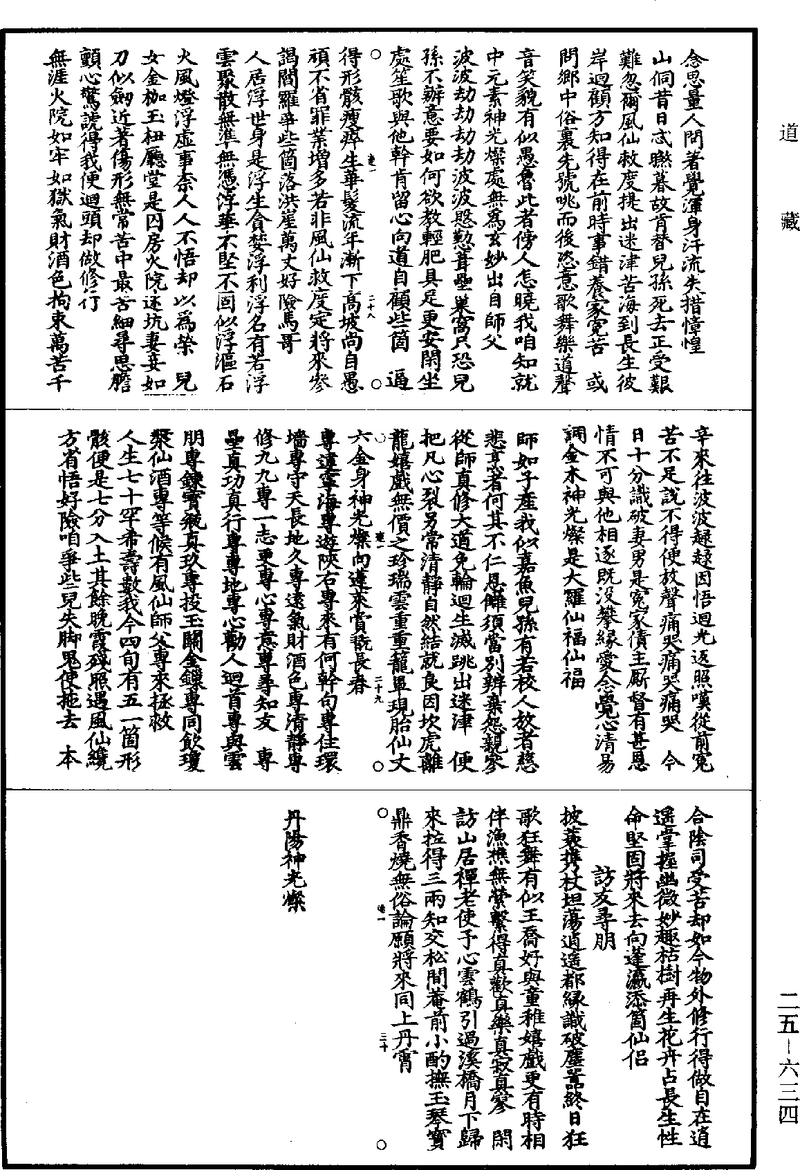 道藏
念思量人問著覺渾身汗流失措憧惶
山侗昔日忒瞮暮故肯眷兒孫死去正受艱
難忽爾風仙救度提出迷津苦海到長生彼
岸迴顧方知得在前時事錯養家冤苦 或
問鄉中俗裏先號咷而後恣意歌舞樂道聲
音笑貌有似愚魯此者傍人怎曉我咱知就
中元素神光燦處無爲玄妙出自師父
波波劫劫劫劫波波慇懃葺壘巢窩只恐兒
孫不辦意要如何欲教輕肥具足更安閑坐
處笙歌與他幹肯留心向道自顧些箇 逼
得形骸瘦瘁生華髮流年漸下高坡尚自愚
頑不省罪業增多若非風仙救度定將來參
謁閻羅爭些箇落洪崖萬丈好險馬哥
人居浮世身是浮生貪婪浮利浮名有若浮
雲聚散無準無憑浮華不堅不固似浮漚石
火風燈浮虛事奈人人不悟却以爲榮 兒
女金枷玉杻廳堂是囚房火院逐坑妻妾如
刀似劒近著傷形無常苦中最苦細尋思膽
顫心驚說得我便迴頭却做修行
無涯火院如牢如獄氣財酒色拘束萬苦千
辛來往波波趢趢因悟迴光返照嘆從前冤
苦不足說不得便放聲痛哭痛哭痛哭 今
日十分識破妻男是冤家債主厮督有甚恩
情不可與他相逐既没攀緣愛念覺心清易
調金木神光燦是大羅仙福仙福
師如子產我似嘉魚兒孫有若校人放者慈
悲烹者何其不仁恩讎須當別辨棄怨親寥
從師真修大道免輪迴生滅跳出迷津 便
把凡心裂另常清靜自然結就良因坎虎離
龍嬉戲無價之珍瑞雲重重籠罩現胎仙丈
六金身神光燦向蓬萊賞翫長春
專違寧海專遊陝右專來有何幹句專住環
墻專守天長地久專遠氣財酒色專清靜專
修九九專一志更專心專意專尋知友 專
壘真功真行專專地專心勸人迴首專與雲
朋專鍊寳瓶真玖專投玉關金鎖專同飲瓊
漿仙酒專等候有風仙師父專來拯救
人生七十罕希壽數我今四旬有五一箇形
骸便是七分入土其餘晚霞殘照遇風仙纔
方省悟好險咱爭些兒失脚鬼使拖去 本
合陰司受苦却如今物外修行得做自在逍
遥掌握幽微妙趣枯樹再生花卉占長生性
命堅固將來去向蓬瀛添箇仙侣
訪友尋朋
披蓑携杖坦蕩逍遥都緣識破塵囂終日狂
歌狂舞有似王喬好與童稚嬉戲更有時相
伴漁樵無縈繫得真歡真樂真寂真寥 閑
訪山居禪老使予心雲鶴引過溪橋月下歸
來拉得三兩知交松間菴前小酌撫玉琴寳
鼎香燒無俗論願將來同上丹霄
丹陽神光燦
二五－六三四